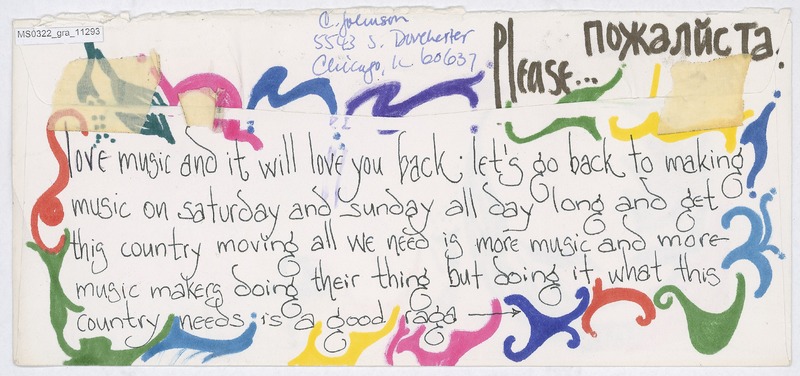 MS0322_gra_11293
C. Johnson
5543 S. Dorchester
Chicago, IL 60637
Please...
пожалйста.
love music and it will love you back. let's go back to making
music on saturday and sunday all day long and get
this country moving all we need is more music and more
music makers doing their thing but doing it. what this
country needs is a good raga →